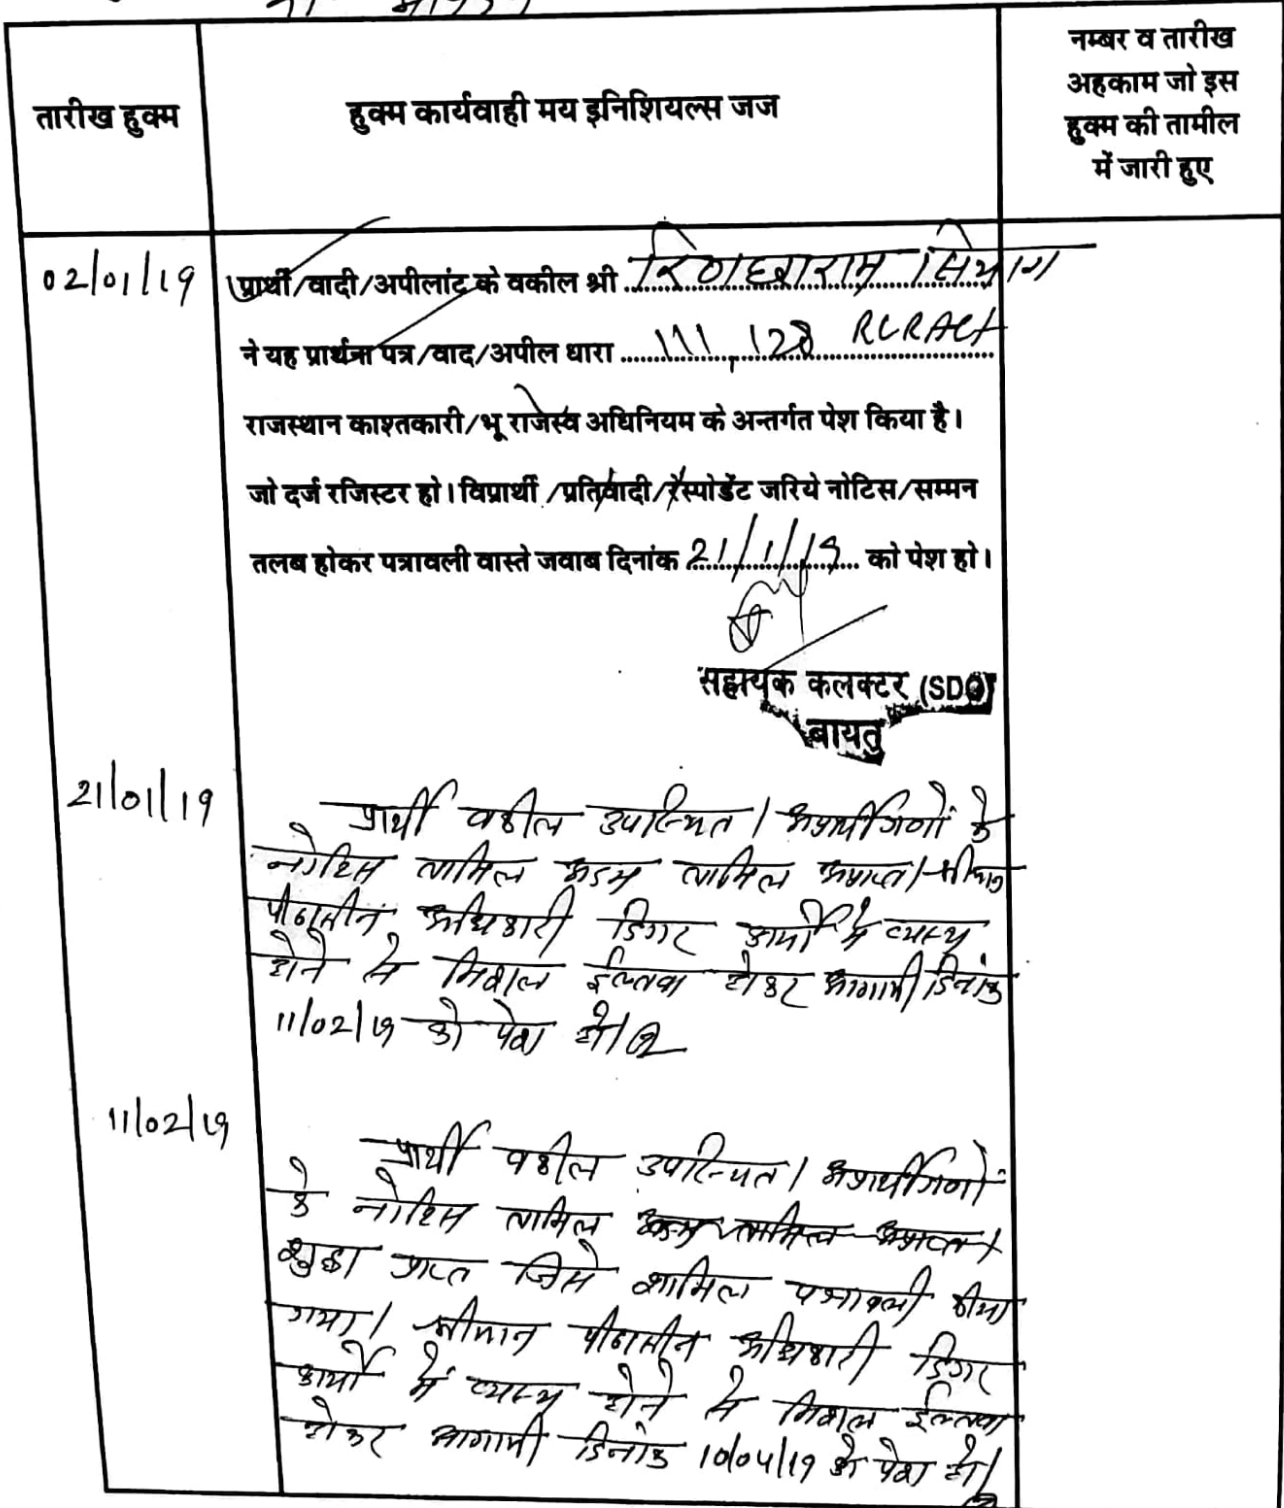 तारीख हुक्म
हुक्म कार्यवाही मय इनिशियल्स जज
नम्बर व तारीख
अहकाम जो इस
हुक्म की तामील
में जारी हुए
02/01/19
प्रार्थी/वादी/अपीलांट के वकील श्री सियाग
ने यह प्रार्थना पत्र/वाद/अपील धारा 111, 128 RLRAct
राजस्थान काश्तकारी/भू राजस्व अधिनियम के अन्तर्गत पेश किया है।
जो दर्ज रजिस्टर हो। विप्रार्थी/प्रतिवादी/रेस्पोडेंट जरिये नोटिस/सम्मन
तलब होकर पत्रावली वास्ते जवाब दिनांक 21/1/19 को पेश हो।
सहायक कलक्टर (SDO)
बायतु
21/01/19
प्रार्थी वकील उपस्थित। अप्रार्थीगणों के
नोटिस तामिल अदम तामिल अप्राप्त। श्रीमान
पीठासीन अधिकारी दिगर कार्यो में व्यस्थ
होने से मिशल ईल्तवा होकर आगामी दिनांक
11/02/19 को पेश हो।
11/02/19
प्रार्थी वकील उपस्थित। अप्रार्थीगणों
के नोटिस तामिल अदम तामिल अप्राप्त।
शुदा प्राप्त जिसे शामिल पत्रावली कीया
गया। श्रीमान पीठासीन अधिकारी दिगर
कार्यो में व्यस्थ होने से मिशल ईल्तवा
होकर आगामी दिनांक 10/04/19 को पेश हो।